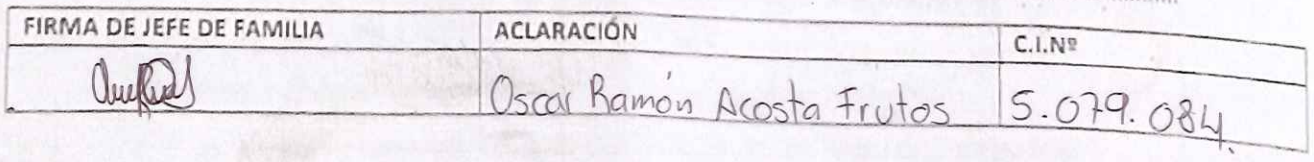 FIRMA DE JEFE DE FAMILIA ACLARACIÓN C.I.Nº
Oscar Ramón Acosta Frutos 5.079.084.